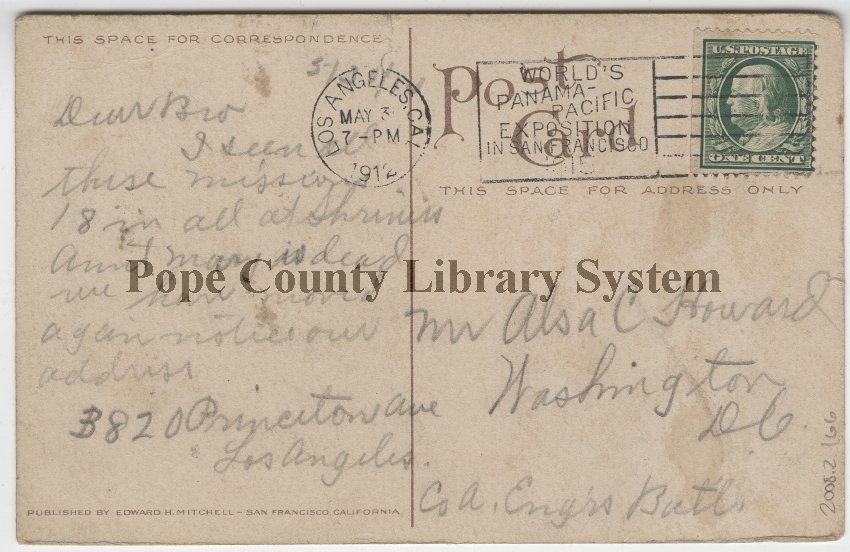 THIS SPACE FOR CORRESPONDENCE
Dear Bro
I seen
these mission
18 in all at Shriniss
Aunt Mary is dead
we have moved
again notice our
address
3820 Princeton Ave
Los Angeles.
PUBLISHED BY EDWARD H. MITCHELL – SAN FRANCISCO, CALIFORNIA
LOS ANGELES, CAL
MAY 3
7-PM
1912
Post Card
WORLD'S
PANAMA-
PACIFIC
EXPOSITION
IN SAN FRANCISCO
1915
U.S. POSTAGE
ONE CENT
THIS SPACE FOR ADDRESS ONLY
Pope County Library System
Mr Alsa C Howard
Washington
D.C.
Co A. Engrs Batl.
2008.2.166